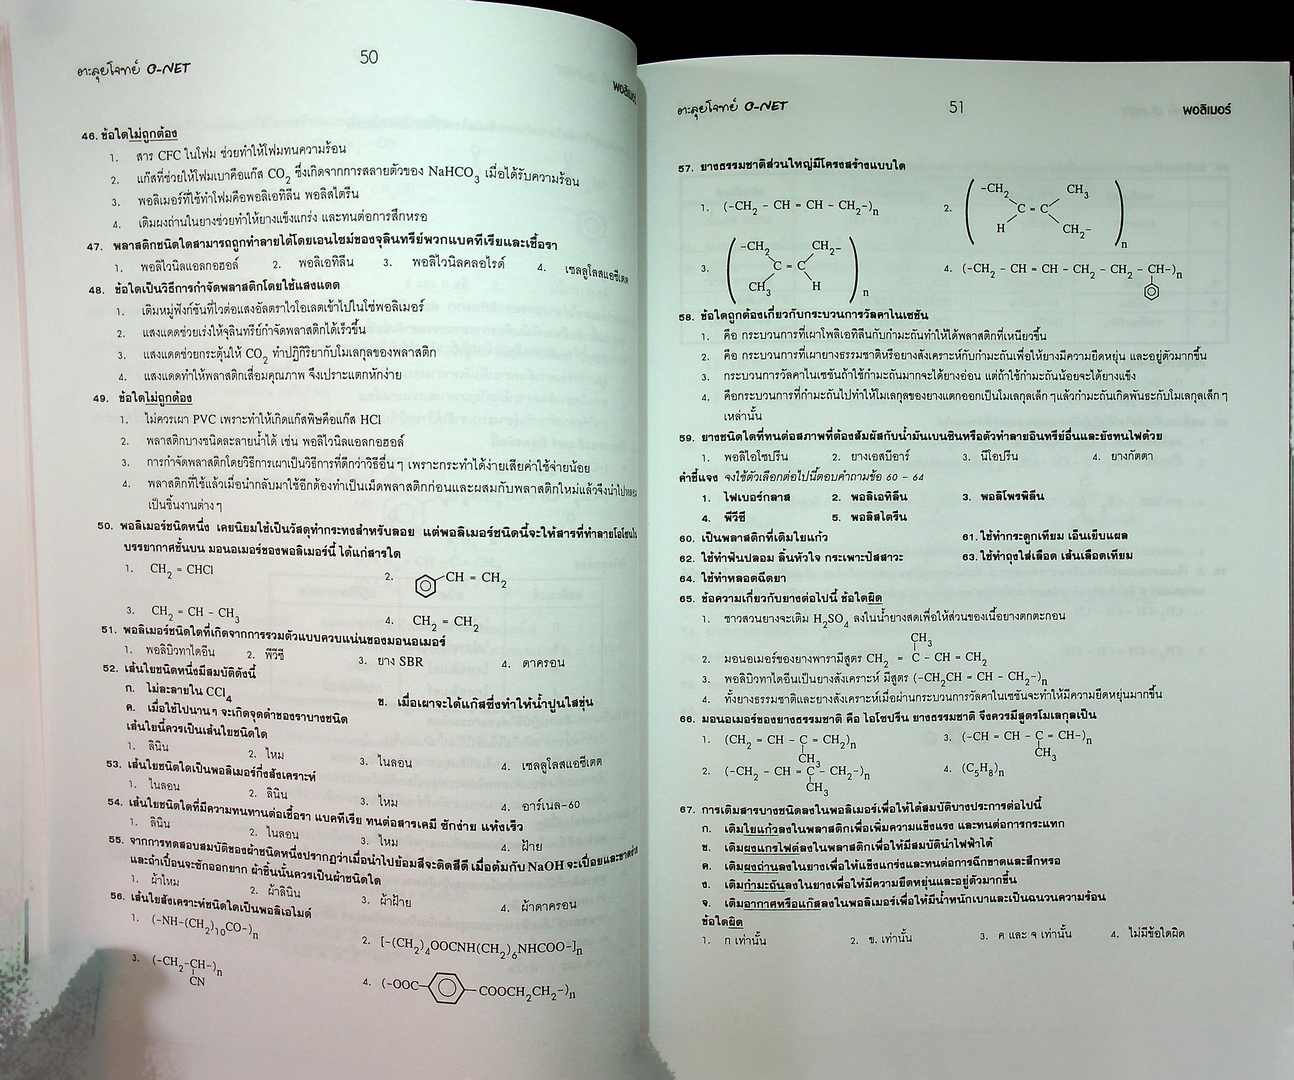 ตะลุยโจทย์ O-NET
50
พอลิเมอร์
46. ข้อใดไม่ถูกต้อง
1. สาร CFC ในโฟม ช่วยทำให้โฟมทนความร้อน
2. แก๊สที่ช่วยให้โฟมเบาคือแก๊ส CO2 ซึ่งเกิดจากการสลายตัวของ NaHCO3 เมื่อได้รับความร้อน
3. พอลิเมอร์ที่ใช้ทำโฟมคือพอลิเอทิลีน พอลิสไตรีน
4. เติมผงถ่านในยางช่วยทำให้ยางแข็งแกร่ง และทนต่อการสึกหรอ
47. พลาสติกชนิดใดสามารถถูกทำลายได้โดยเอนไซม์ของจุลินทรีย์พวกแบคทีเรียและเชื้อรา
1. พอลิไวนิลแอลกอฮอล์ 2. พอลิเอทิลีน 3. พอลิไวนิลคลอไรด์ 4. เซลลูโลสแอซีเตต
48. ข้อใดเป็นวิธีการกำจัดพลาสติกโดยใช้แสงแดด
1. เติมหมู่ฟังก์ชันที่ไวต่อแสงอัลตราไวโอเลตเข้าไปในโซ่พอลิเมอร์
2. แสงแดดช่วยเร่งให้จุลินทรีย์กำจัดพลาสติกได้เร็วขึ้น
3. แสงแดดช่วยกระตุ้นให้ CO2 ทำปฏิกิริยากับโมเลกุลของพลาสติก
4. แสงแดดทำให้พลาสติกเสื่อมคุณภาพ จึงเปราะแตกหักง่าย
49. ข้อใดไม่ถูกต้อง
1. ไม่ควรเผา PVC เพราะทำให้เกิดแก๊สพิษคือแก๊ส HCl
2. พลาสติกบางชนิดละลายน้ำได้ เช่น พอลิไวนิลแอลกอฮอล์
3. การกำจัดพลาสติกโดยวิธีการเผาเป็นวิธีการที่ดีกว่าวิธีอื่นๆ เพราะกระทำได้ง่ายเสียค่าใช้จ่ายน้อย
4. พลาสติกที่ใช้แล้วเมื่อนำกลับมาใช้อีกต้องทำเป็นเม็ดพลาสติกก่อนและผสมกับพลาสติกใหม่แล้วจึงนำไป
เป็นชิ้นงานต่างๆ
50. พอลิเมอร์ชนิดหนึ่ง เคยนิยมใช้เป็นวัสดุทำกระทงสำหรับลอย แต่พอลิเมอร์ชนิดนี้จะให้สารที่ทำลายโอโซนใน
บรรยากาศชั้นบน มอนอเมอร์ของพอลิเมอร์นี้ ได้แก่สารใด
1. CH2 = CHCl 2. CH = CH2
3. CH2 = CH – CH3 4. CH2 = CH2
51. พอลิเมอร์ชนิดใดที่เกิดจากการรวมตัวแบบควบแน่นของมอนอเมอร์
1. พอลิบิวทาไดอีน 2. พีวีซี 3. ยาง SBR 4. ดาครอน
52. เส้นใยชนิดหนึ่งมีสมบัติดังนี้
ก. ไม่ละลายใน CCl4 ข. เมื่อเผาจะได้แก๊สซึ่งทำให้น้ำปูนใสขุ่น
ค. เมื่อใช้ไปนานๆ จะเกิดจุดดำของราบางชนิด
เส้นใยนี้ควรเป็นเส้นใยชนิดใด
1. ลินิน 2. ไหม 3. ไนลอน 4. เซลลูโลสแอซีเตต
53. เส้นใยชนิดใดเป็นพอลิเมอร์กึ่งสังเคราะห์
1. ไนลอน 2. ลินิน 3. ไหม 4. อาร์เนล-60
54. เส้นใยชนิดใดที่มีความทนทานต่อเชื้อรา แบคทีเรีย ทนต่อสารเคมี ซักง่าย แห้งเร็ว
1. ลินิน 2. ไนลอน 3. ไหม 4. ฝ้าย
55. จากการทดสอบสมบัติของผ้าชนิดหนึ่งปรากฏว่าเมื่อนำไปย้อมสีจะติดสีดี เมื่อต้มกับ NaOH จะเปื่อยและขาดง่าย
และถ้าเปื้อนจะซักออกยาก ผ้าชิ้นนั้นควรเป็นผ้าชนิดใด
1. ผ้าไหม 2. ผ้าลินิน 3. ผ้าฝ้าย 4. ผ้าดาครอน
56. เส้นใยสังเคราะห์ชนิดใดเป็นพอลิเอไมด์
1. (–NH–(CH2)10CO–)n 2. [–(CH2)4OOCNH(CH2)6NHCOO–]n
3. (–CH2–CH–)n
CN
4. (–OOC– –COOCH2CH2–)n
ตะลุยโจทย์ O-NET
51
พอลิเมอร์
57. ยางธรรมชาติส่วนใหญ่มีโครงสร้างแบบใด
1. (–CH2 – CH = CH – CH2–)n
2. –CH2 CH3
C = C
H CH2–
n
3. –CH2 CH2–
C = C
CH3 H
n
4. (–CH2 – CH = CH – CH2 – CH2 – CH–)n
58. ข้อใดถูกต้องเกี่ยวกับกระบวนการวัลคาไนเซชัน
1. คือ กระบวนการที่เผาโพลิเอทิลีนกับกำมะถันทำให้ได้พลาสติกที่เหนียวขึ้น
2. คือ กระบวนการที่เผายางธรรมชาติหรือยางสังเคราะห์กับกำมะถันเพื่อให้ยางมีความยืดหยุ่น และอยู่ตัวมากขึ้น
3. กระบวนการวัลคาไนเซชันถ้าใช้กำมะถันมากจะได้ยางอ่อน แต่ถ้าใช้กำมะถันน้อยจะได้ยางแข็ง
4. คือกระบวนการที่กำมะถันไปทำให้โมเลกุลของยางแตกออกเป็นโมเลกุลเล็กๆแล้วกำมะถันเกิดพันธะกับโมเลกุลเล็กๆ
เหล่านั้น
59. ยางชนิดใดที่ทนต่อสภาพที่ต้องสัมผัสกับน้ำมันเบนซินหรือตัวทำลายอินทรีย์อื่นและยังทนไฟด้วย
1. พอลิไอโซปรีน 2. ยางเอสบีอาร์ 3. นีโอปรีน 4. ยางกัตตา
คำชี้แจง จงใช้ตัวเลือกต่อไปนี้ตอบคำถามข้อ 60 – 64
1. ไฟเบอร์กลาส 2. พอลิเอทิลีน 3. พอลิโพรพิลีน
4. พีวีซี 5. พอลิสไตรีน
60. เป็นพลาสติกที่เติมใยแก้ว 61. ใช้ทำกระดูกเทียม เอ็นเย็บแผล
62. ใช้ทำฟันปลอม ลิ้นหัวใจ กระเพาะปัสสาวะ 63. ใช้ทำถุงใส่เลือด เส้นเลือดเทียม
64. ใช้ทำหลอดฉีดยา
65. ข้อความเกี่ยวกับยางต่อไปนี้ ข้อใดผิด
1. ชาวสวนยางจะเติม H2SO4 ลงในน้ำยางสดเพื่อให้ส่วนของเนื้อยางตกตะกอน
CH3
2. มอนอเมอร์ของยางพารามีสูตร CH2 = C – CH = CH2
3. พอลิบิวทาไดอีนเป็นยางสังเคราะห์ มีสูตร (–CH2CH = CH – CH2–)n
4. ทั้งยางธรรมชาติและยางสังเคราะห์เมื่อผ่านกระบวนการวัลคาไนเซชันจะทำให้มีความยืดหยุ่นมากขึ้น
66. มอนอเมอร์ของยางธรรมชาติ คือ ไอโซปรีน ยางธรรมชาติ จึงควรมีสูตรโมเลกุลเป็น
1. (CH2 = CH – C = CH2)n 3. (–CH = CH – C = CH–)n
CH3 CH3
2. (–CH2 – CH = C – CH2–)n 4. (C5H8)n
CH3
67. การเติมสารบางชนิดลงในพอลิเมอร์เพื่อให้ได้สมบัติบางประการต่อไปนี้
ก. เติมใยแก้วลงในพลาสติกเพื่อเพิ่มความแข็งแรง และทนต่อการกระแทก
ข. เติมผงแกรไฟต์ลงในพลาสติกเพื่อให้มีสมบัตินำไฟฟ้าได้
ค. เติมผงถ่านลงในยางเพื่อให้แข็งแกร่งและทนต่อการฉีกขาดและสึกหรอ
ง. เติมกำมะถันลงในยางเพื่อให้มีความยืดหยุ่นและอยู่ตัวมากขึ้น
จ. เติมอากาศหรือแก๊สลงในพอลิเมอร์เพื่อให้มีน้ำหนักเบาและเป็นฉนวนความร้อน
ข้อใดผิด
1. ก เท่านั้น 2. ข. เท่านั้น 3. ค และ จ เท่านั้น 4. ไม่มีข้อใดผิด